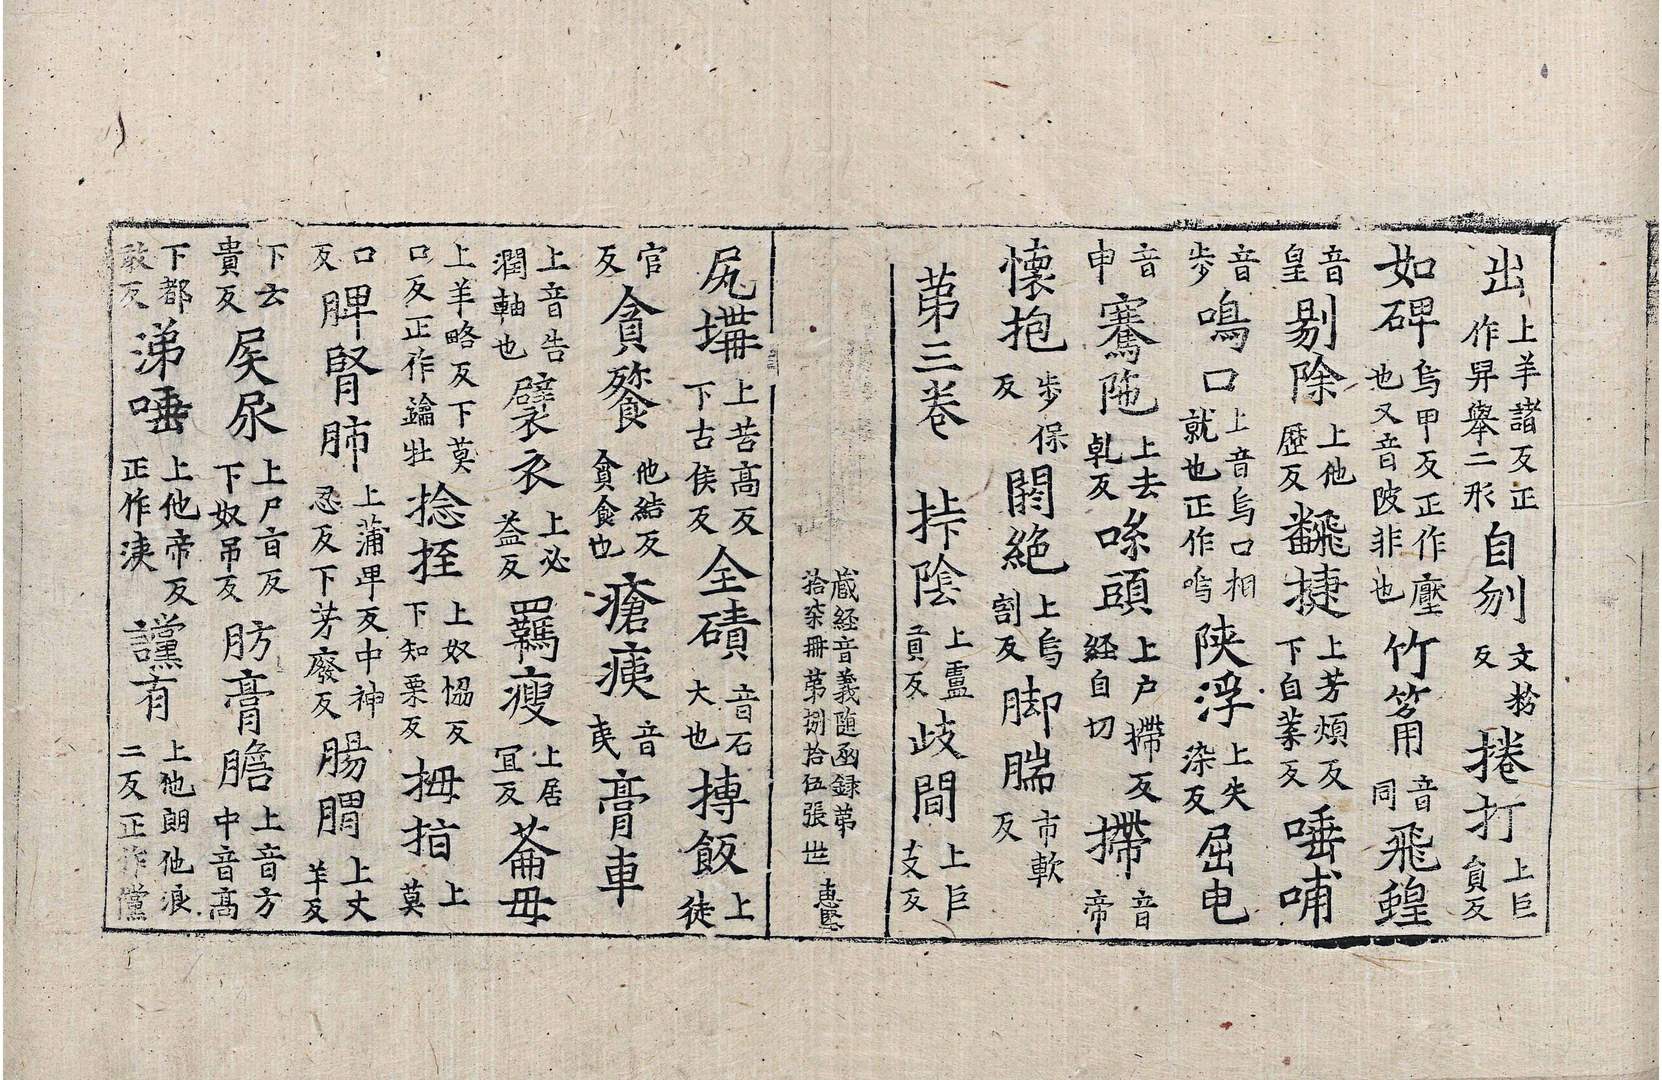 出上羊諸反正作舁舉二形自刎文粉反捲打上巨貟反
如碑烏甲反正作壓也又音陂非也竹䈬音同飛蝗
音皇剔除上他歷反飜捷上芳煩反下自葉反唾哺
音步鳴口上音烏口相就也正作嗚陜浮上失染反屈电
音申騫陁上去乹反啼頭上户𢂇反經自切㨪音帝
懷抱步保反閼絶上烏割反脚腨市軟反
第三卷 㧊陰上靈貢反歧間上巨支反
藏経音義随函録第拾柒冊第捌拾伍張 世 惠堅
尻㙛上苦高反下古侯反全磧音石大也摶飯上徒
官反貪餮他結反貪食也瘡痍音夷膏車
上音告潤軸也襞衣上必益反羈瘦上居冝反䈥毋
上羊略反下莫口反正作鑰牡捻挃上奴恊反下知栗反拇指上莫
口反脾腎肺上蒲卑反中神忍反下芳廢反腸胃上丈羊反
下云貴反屎尿上尸旨反下奴吊反肪膏膽上音方中音高
下都敢反涕唾上他帝反正作洟讜有上他朗他浪二反正作儻